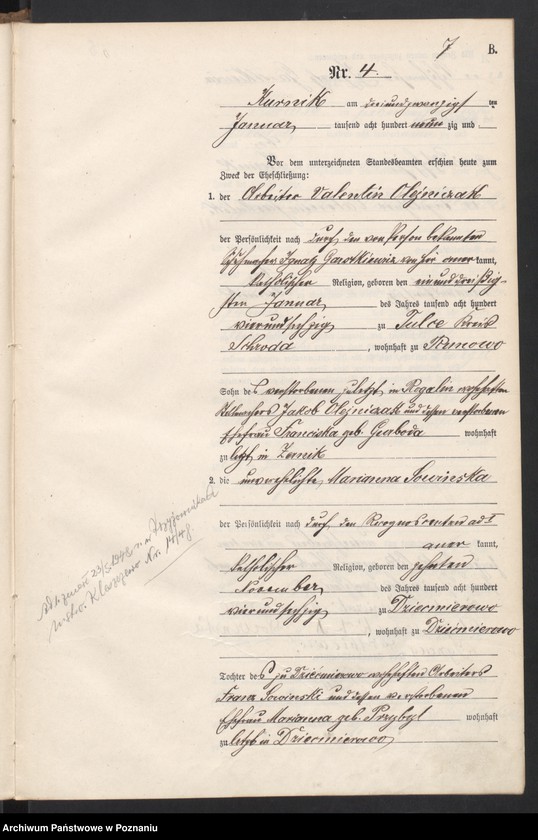 7 B.
Nr. 4.
Kurnik am dreiundzwanzigsten
Januar tausend acht hundert neunzig und
Vor dem unterzeichneten Standesbeamten erschien heute zum
Zweck der Eheschließung:
1. der Arbeiter Valentin Olejniczak
der Persönlichkeit nach durch den von Person bekannten
Ignatz von hier anerkannt,
katholischer Religion, geboren den einunddreißig-
sten Januar des Jahres tausend acht hundert
vierundsechzig zu Tulce Kreis
Schroda, wohnhaft zu Runowo
Sohn des verstorbenen, zuletzt in Rogalin wohnhaften
Jakob Olejniczak und dessen verstorbenen
Ehefrau Franciska geb. Graboda wohnhaft
zuletzt in Zernik
2. die unverehelichte Marianna Sowinska
der Persönlichkeit nach durch den Recognoscenten ad 1
anerkannt,
katholischer Religion, geboren den zehnten
November des Jahres tausend acht hundert
vierundsechzig zu Dziecmierowo
, wohnhaft zu Dziećmierowo
Tochter des zu Dziećmierowo wohnhaften Arbeiters
Franz Sowinski und dessen verstorbenen
Ehefrau Marianna geb. Przybyl wohnhaft
zuletzt in Dziecmierowo
Nr. 14/48.
Archiwum Państwowe w Poznaniu